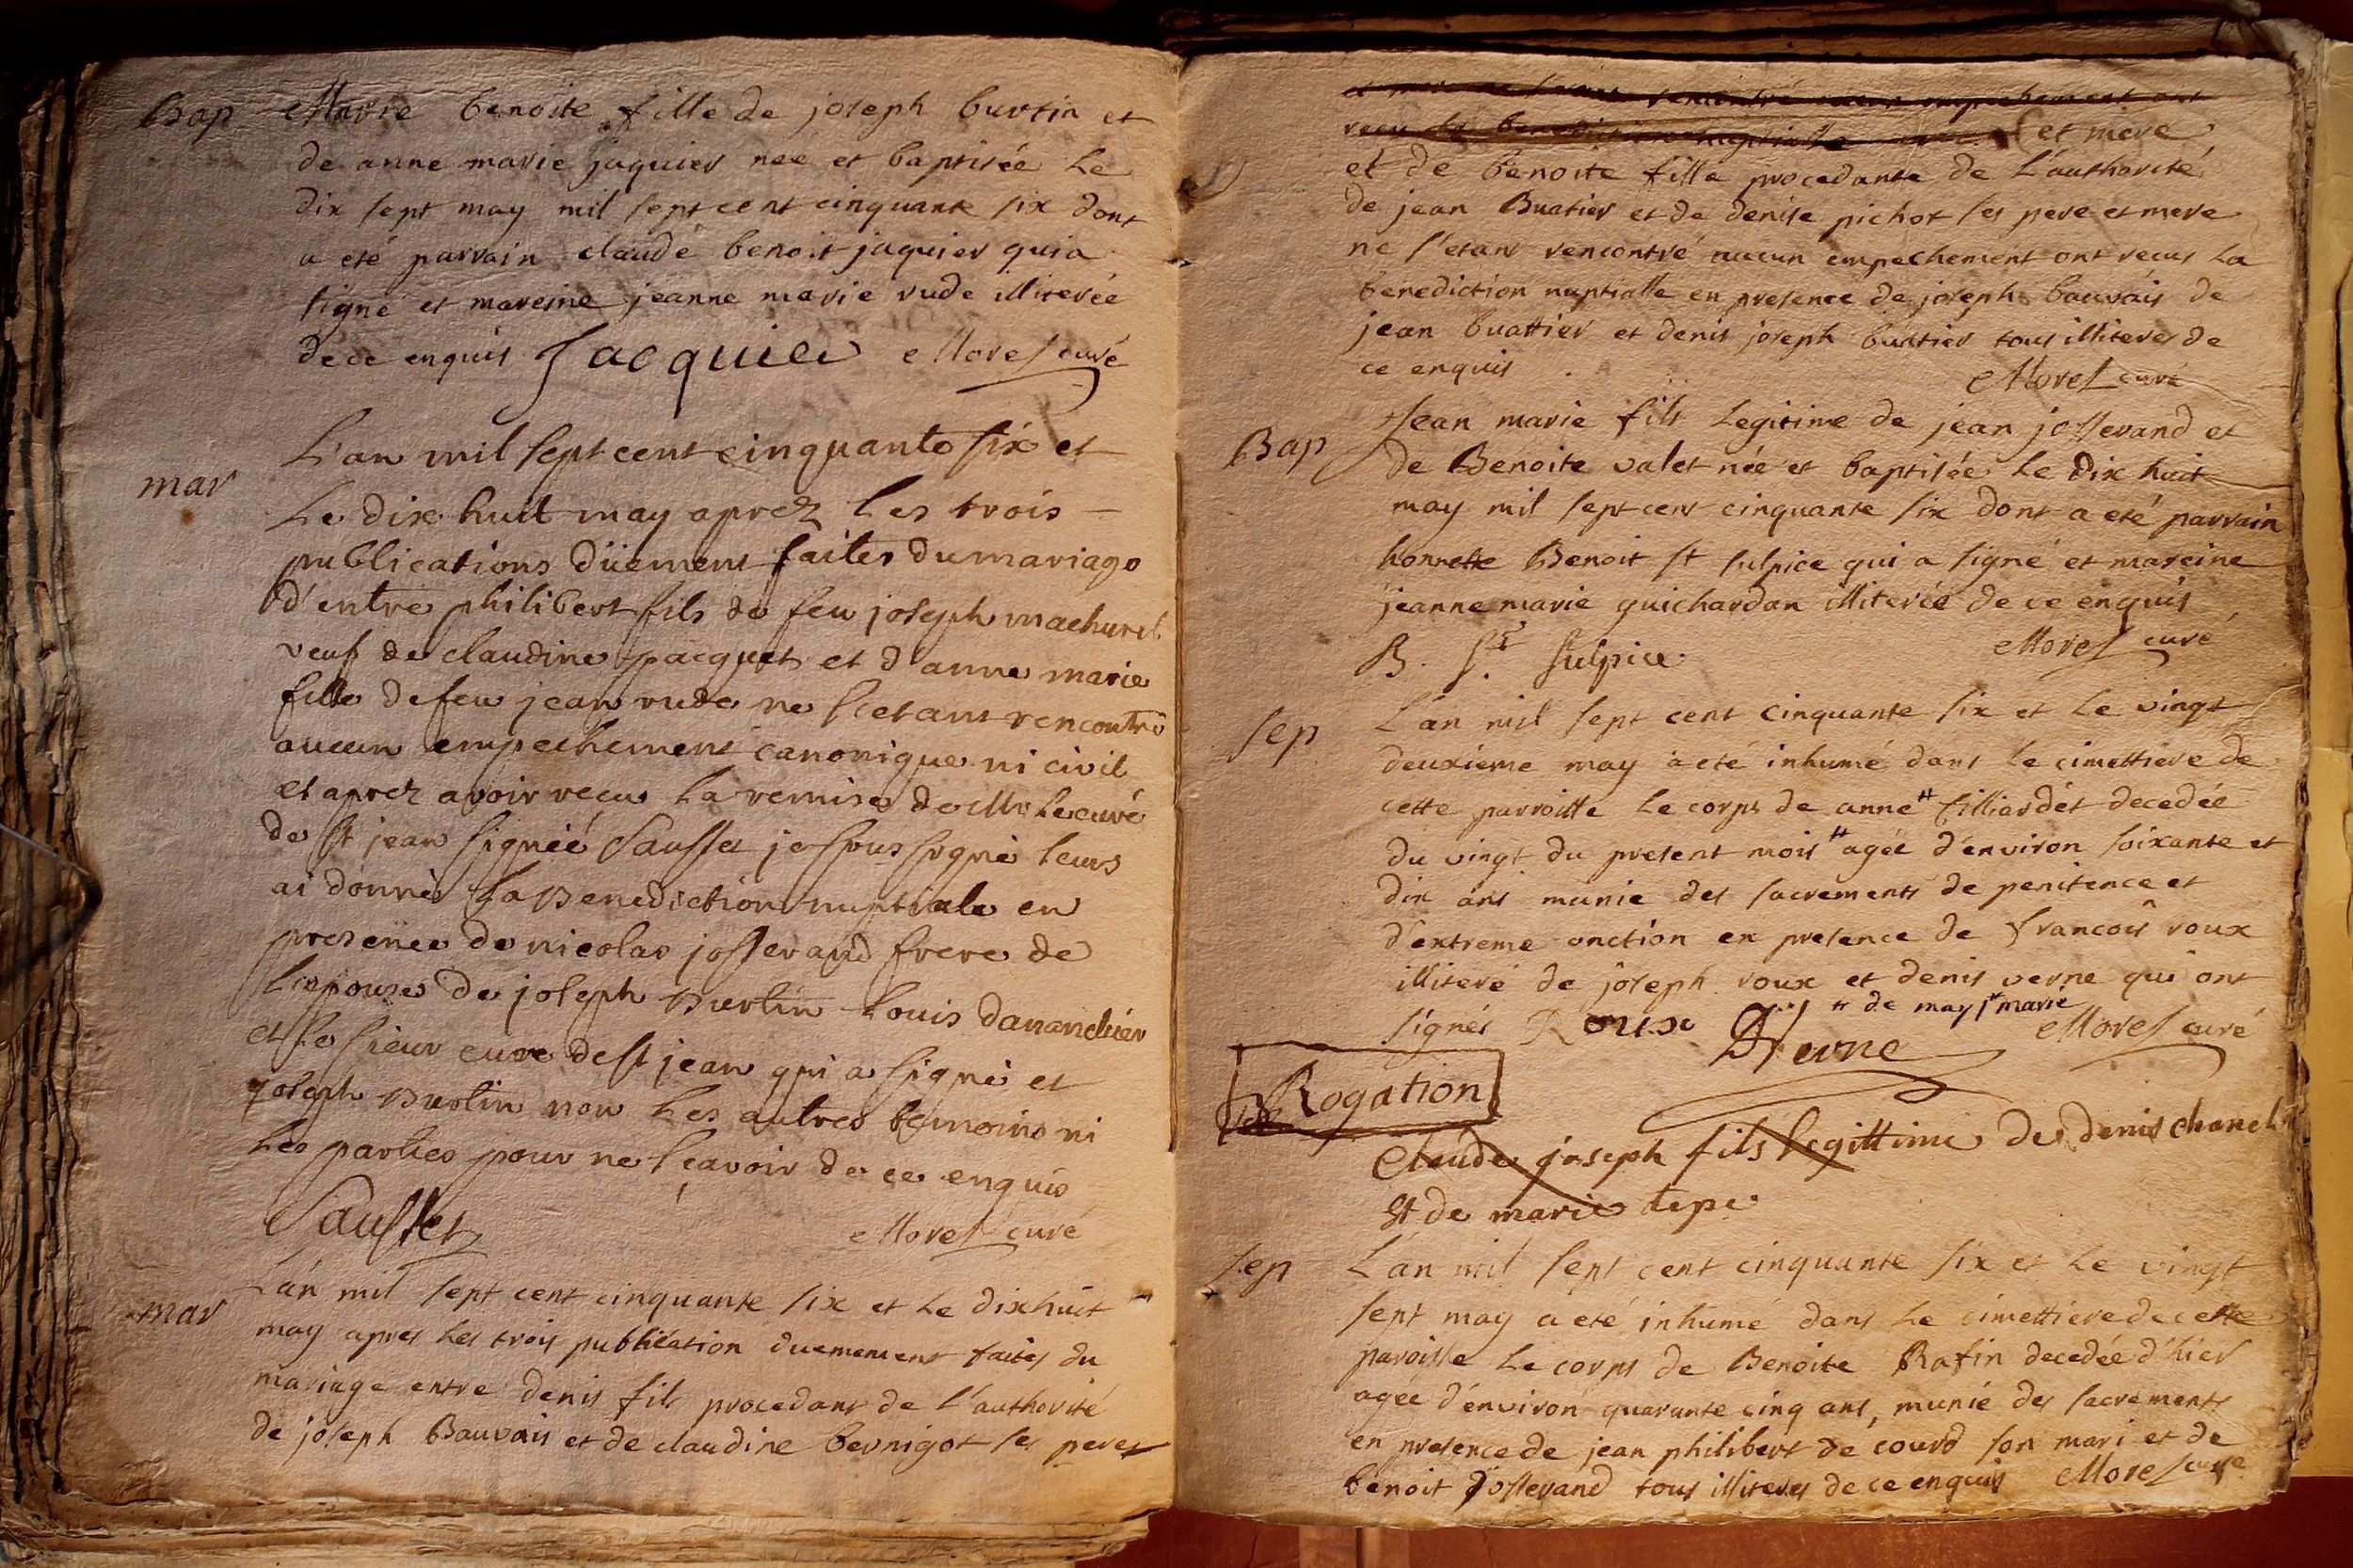 Bap
Marie benoite fille de joseph burtin et
de anne marie jaquier nee et baptisée le
dix sept may mil sept cent cinquante six dont
a eté parrain claude benoit jaquier qui a
signé et mareine jeanne marie rude illiterée
de ce enquis Jacquier Morel curé
mar
L'an mil sept cent cinquante six et
Le dix huit may aprez les trois
publications düement faites du mariage
d'entre philibert fils de feu joseph machurel
veuf de claudine pacquet et d'anne marie
fille de feu jean rude ne s'etant rencontré
aucun empechement canonique ni civil
et aprez avoir recu la remise de Mr le curé
de st jean signéé Sausset je soussigné leurs
ai donné la Benediction nuptiale en
presence de nicolas josserand frere de
l'epouse de joseph Burtin Louis dananchier
et le sieur curé de st jean qui a signé et
joseph Burtin non les autres temoins ni
les parties pour ne sçavoir de ce enquis
Sausset Morel curé
mar
L'an mil sept cent cinquante six et le dixhuit
may apres les trois publication duemement faites du
mariage entre denis fils procedant de l'authorité
de joseph Bauvais et de claudine bernigot ses peres
et mere ne s'etant rencontré aucun empechement ont
recu la benediction nuptialle et mere
et de benoite fille procedante de l'authorité
de jean Buatier et de denise pichot ses pere et mere
ne s'etant rencontré aucun empechement ont recus la
benediction nuptialle en presence de joseph bauvais de
jean buattier et denis joseph buattier tous illiteres de
ce enquis Morel curé
Bap
Jean marie fils legitime de jean josserand et
de Benoite valet née et baptisée le dix huit
may mil sept cent cinquante six dont a eté parrain
honnette Benoit st sulpice qui a signé et mareine
jeanne marie guichardan illiterée de ce enquis
B. St. Sulpice Morel curé
sep
L'an mil sept cent cinquante six et le vingt
deuxieme may a eté inhumé dans le cimettiere de
cette parroisse le corps de anne # filliardet decedée
du vingt du present mois # agée d'environ soixante et
dix ans munie des sacrements de penitence et
d'extreme onction en presence de francois roux
illiteré de joseph roux et denis verne qui ont
signés Roux # de may # marie
D Verne Morel curé
Rogation
Claude joseph fils legittime de denis chanel
Et de marie tepe
sep
L'an mil sept cent cinquante six et le vingt
sept may a eté inhume dans le cimettiere de cette
paroisse le corps de Benoite Rafin decedée d'hier
agée d'environ quarante cinq ans, munie des sacrements
en presence de jean philibert de courd son mari et de
benoit Josserand tous illiteres de ce enquis Morel curé